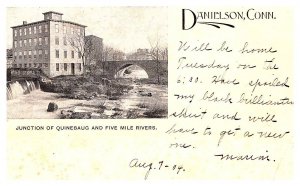 DANIELSON, CONN.
Will be home
Tuesday on the
6;30. Have spoiled
my black brilliantine
skirt and will
have to get a new
one.
JUNCTION OF QUINEBAUG AND FIVE MILE RIVERS.
Aug. 7 - 04